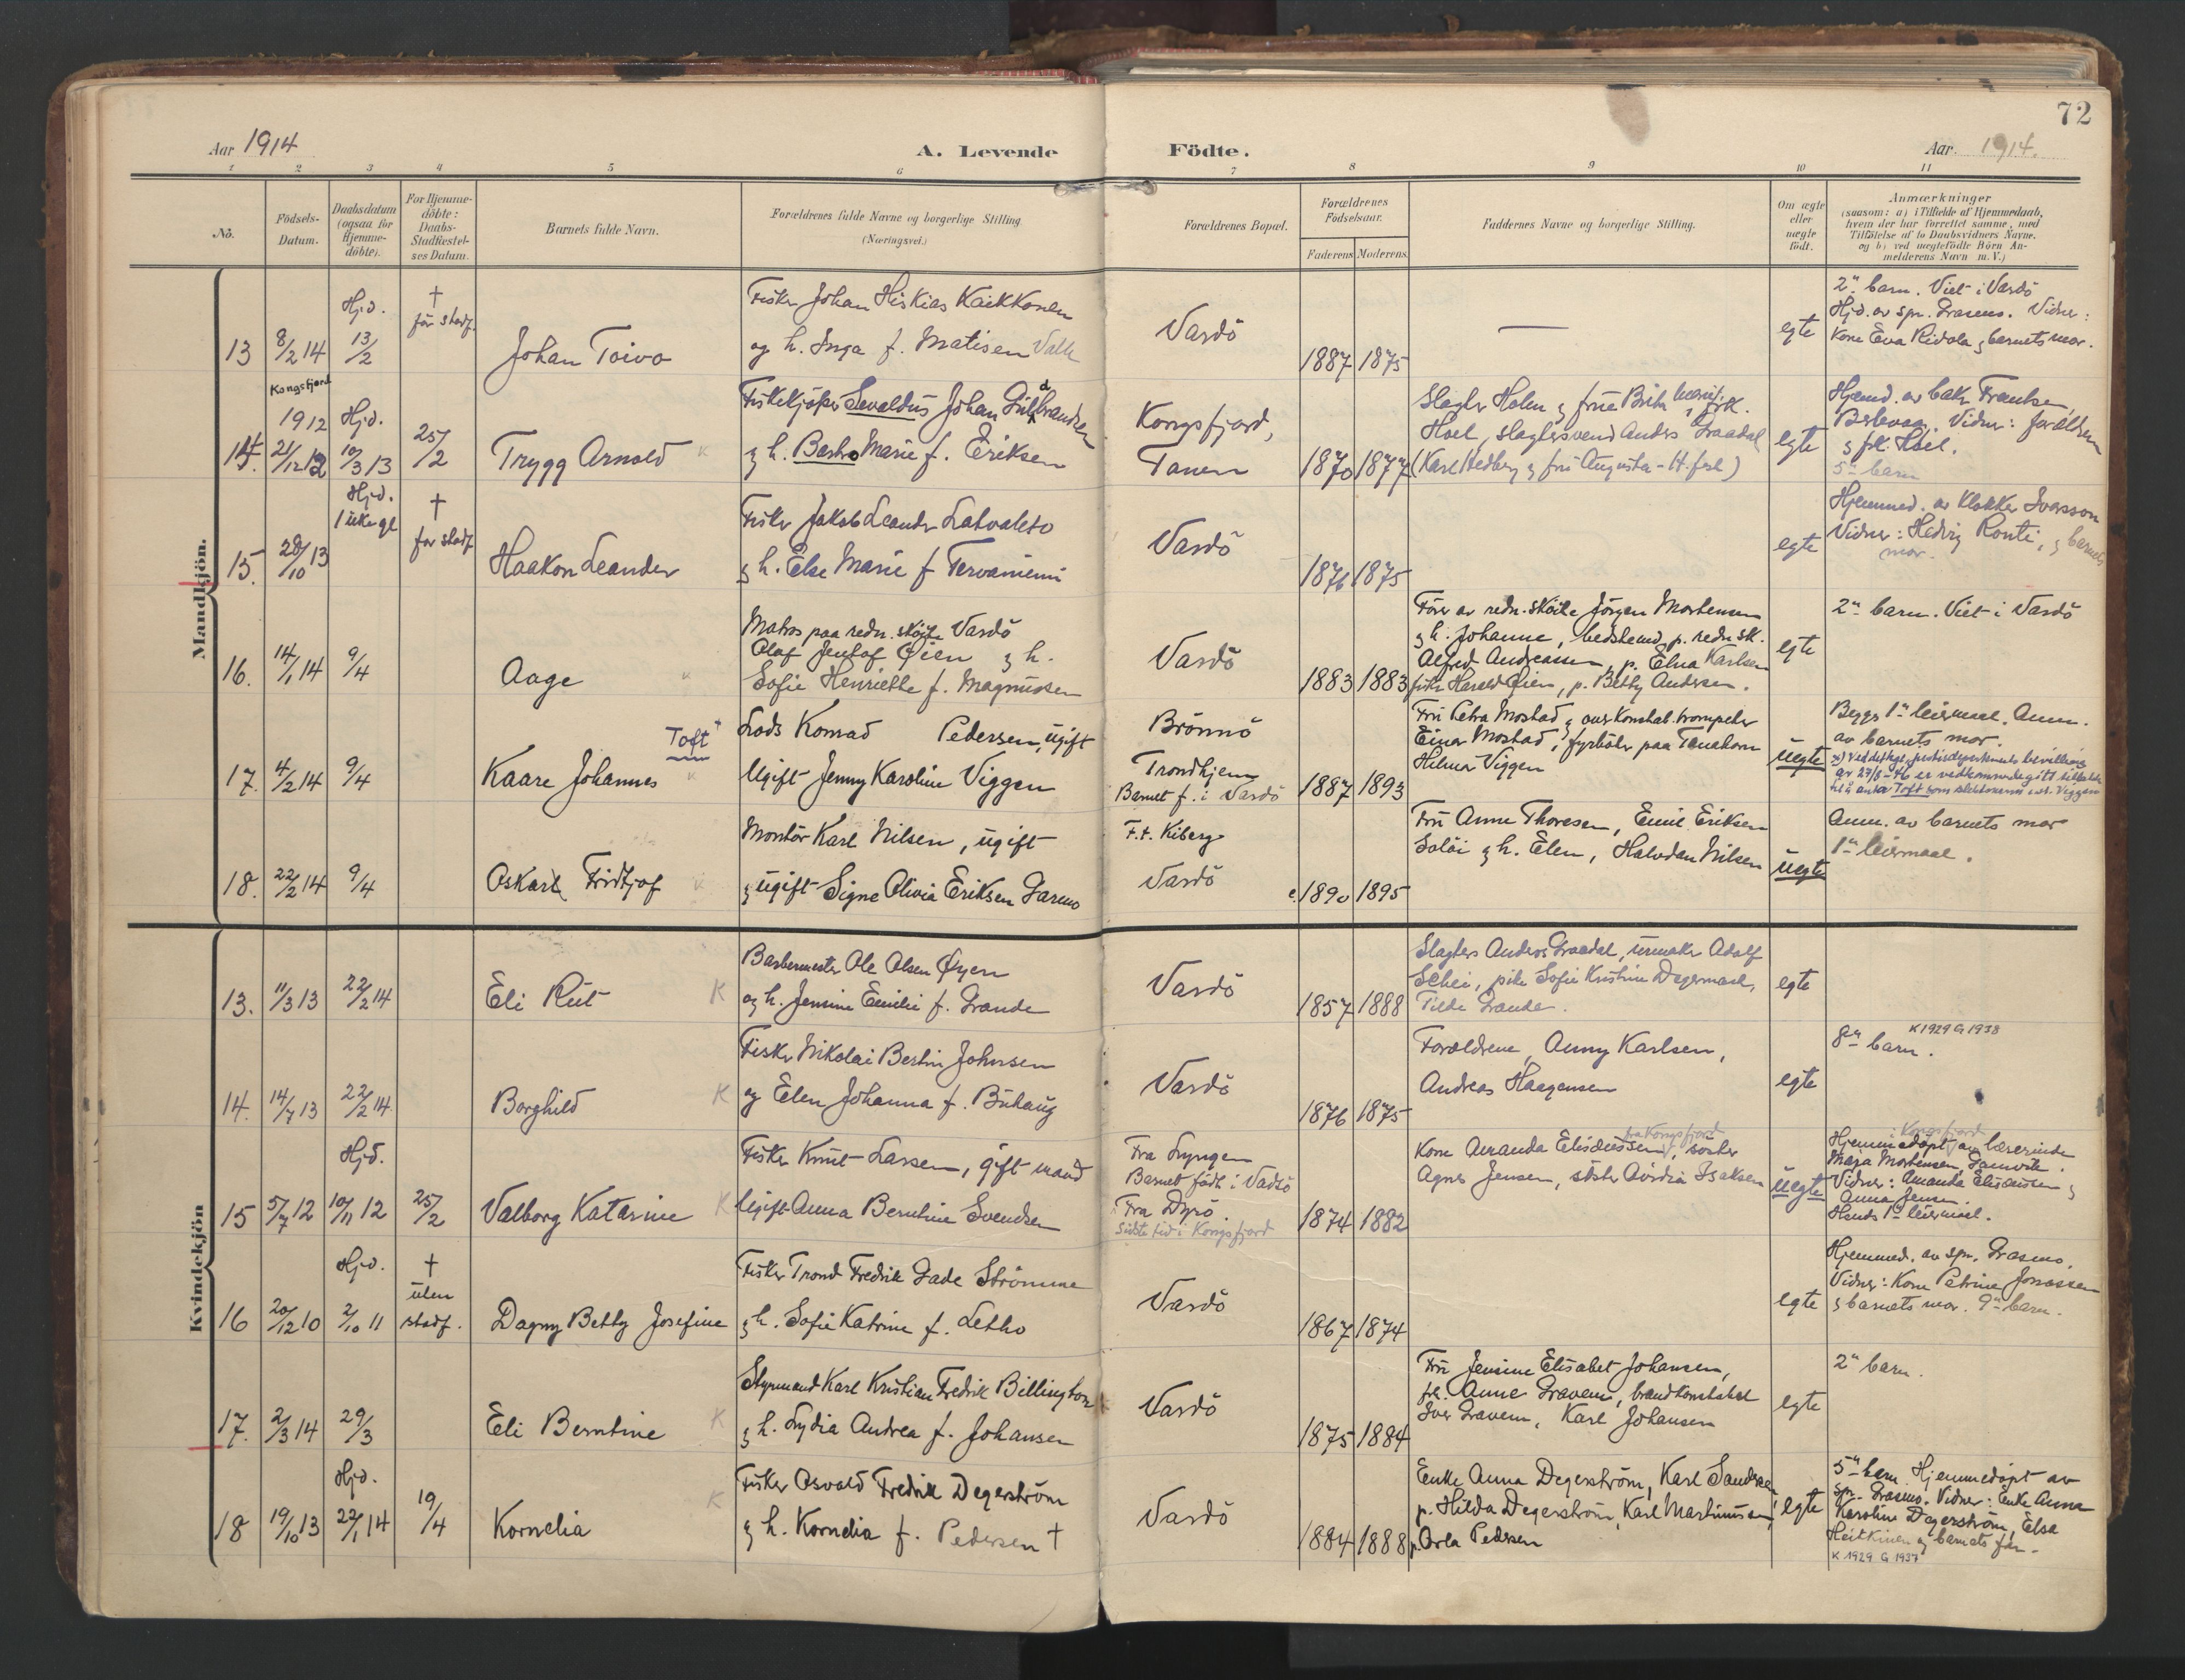 72
Aar 1914
A. Levende Födte.
Aar 1914.
1 2 3 4 5 6 7 8 9 10 11
No.
Födsels-
Datum.
Daabsdatum
(ogsaa for
Hjemme-
döbte).
For Hjemme-
döbte:
Daabs-
Stadfæstel-
ses Datum.
Barnets fulde Navn.
Forældrenes fulde Navne og borgerlige Stilling
(Næringsvei.)
Forældrenes Bopæl.
Forældrenes
Födselsaar.
Faderens Moderens
Faddernes Navne og borgerlige Stilling.
Om ægte
eller
uægte
født.
Anmærkninger
(saasom: a) i Tilfælde af Hjemmedaab,
hvem der har forrettet samme, med
Tilföielse af to Daabsvidners Navne.
og b) ved uægtefödte Börn An-
melderens Navn m. V.)
Mandkjön.
13
8/2 14
Hjd.
13/2
†
før stadf.
Johan Toivo
Fisker Johan Hiskias Kaikkonen
og h. Inga f. Matisen Valle
Vardö
1887 1875
egte
2n barn. Viet i Vardö
Hjd. av spr. Grasmo. Vidner:
Kone Eva Ridola & barnets mor.
14.
Kongsfjord
1912
21/12 12
Hjd.
10/3 13
25/2
Trygg Arnold K
Fiskekjöper Sevaldus Johan Guldbrandsen
& h. Barbro Marie f. Eriksen
Kongsfjord,
Tanen
1870 1877
Slagter Holm & frue Brita Marie, frk.
Hoel, slagtersvend Anders Graadal
(Karl Hedberg & fru Augusta - H. fest)
egte
Hjemd. av bakr. Frantsen,
Berlevaag. Vidner: forældrene
& frk. Hoel.
5n barn
15.
28/10 13
Hjd.
1 uke gl
†
før stadf
Haakon Leander
Fisker Jakob Leander Latvaleto
& h. Else Marie f Tervaniemi
Vardö
1876 1875
egte
Hjemmed. av Klokker Iversson
Vidner: Hedvig Ronti, & barnets
mor.
16.
14/1 14
9/4
Aage K
Matros paa redn. sköite Vardö
Olaf Jentof Öien & h.
Sofie Henriette f. Magnussen
Vardö
1883 1883
Förer av redn. sköite Jörgen Mortensen
& h. Johanne, bedstemd. p. redn. sk.
Alfred Andreassen, p. Elna Karlsen
fisker Harald Öien, p. Betty Andersen.
egte
2n barn. Viet i Vardö
17.
4/2 14
9/4
Kaare Johannes Toft K
Lods Konrad Pedersen, ugift
Ugift Jenny Karoline Viggen
Brönnö
Trondhjem
Barnet f. i Vardö
1887 1893
Fru Petra Mostad & overkonstab. trompeter
Einar Mostad, fyrböter paa Tanahorn
Hilmar Viggen
uegte
Begges 1n leiermaal. Anm.
av barnets mor.
x) Ved det kgl. justisdepartements bevilling
av 27/8-46 er vedkommende gitt tillatelse
til å anta Toft som slektsnavn i st. Viggen
18.
22/2 14
9/4
Oskar Fridtjof K
Montör Karl Nilsen, ugift
& ugift Signe Olivia Eriksen Garmo
F.t. Kiberg
Vardö
c. 1890 1895
Fru Anna Thoresen, Emil Eriksen
Solöi & h. Elen, Halvdan Nilsen
uegte
Anm. av barnets mor
1n leiermaal.
Kvindekjön
13.
11/3 13
22/2 14
Eli Rut K
Barbermester Ole Olsen Öyen
og h. Jensine Emilie f. Grande
Vardö
1857 1888
Slagters Anders Graadal, urmaker Adolf
Schei, pike Sofie Kristine Degermark,
Tilda Grande.
egte
14.
14/7 13
22/2 14
Borghild K
Fisker Nikolai Bertin Johnsen
og Elen Johanna f. Buhaug
Vardö
1876 1875
Forældrene, Anny Karlsen,
Andreas Haagensen
egte
8n barn.
K 1929 G 1938
15
5/7 12
Hjd.
10/11 12
25/2
Valborg Katarine K
Fisker Knut Larsen, gift mand
Ugift Anna Berntine Svendsen
Fra Lyngen
Barnet födt i Vadsö
Fra Dyrö
Sidste tid i Kongsfjord
1874 1882
Kone Amanda Eliseussen fra Kongsfjord, söster
Agnes Jensen, söster Avirdia Isaksen
uegte
Hjemmedöpt i Kongsfjord av lærerinde
Maja Mortensen, Gamvik.
Vidner: Amanda Eliseussen &
Anna Jensen.
Hends 1n leiermaal.
16
20/12 10
Hjd.
2/10 11
†
uten
stadf.
Dagny Betty Josefine
Fisker Trond Fredrik Gade Strömme
& h. Sofie Katrine f. Letho
Vardö
1867 1874
egte
Hjemmed. av spr. Grasmo.
Vidner: Kone Petrine Jonassen
& barnets mor. 9n barn.
17.
2/3 14
29/3
Eli Berntine K
Styrmand Karl Kristian Fredrik Billington
& h. Lydia Andrea f. Johansen
Vardö
1875 1884
Fru Jensine Elisabet Johansen,
frk. Anne Gravem, brandkonstabel
Iver Gravem, Karl Johansen
egte
2n barn.
18
19/10 13
Hjd.
22/1 14
19/4
Kornelia K
Fisker Osvald Fredrik Degerström
& h. Kornelia f. Pedersen †
Vardö
1884 1888
Enke Anna Degerström, Karl Sandersen,
p. Hilda Degerström, Karl Martinussen,
p. Orla Pedersen
egte
5n barn. Hjemmedöpt av
spr. Grasmo. Vidner: Enke Anna
Karoline Degerström, Elsa
Heitkinen & barnets far.
K 1929 G 1937